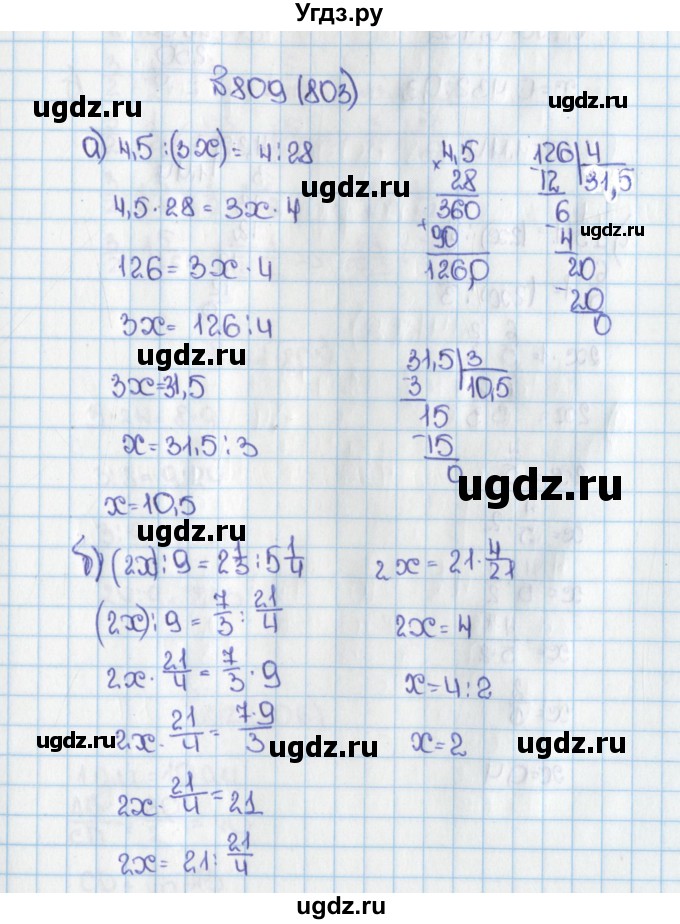 Угдз.ру
№809 (803)
ugdz.ru ugdz.ru
а) 4,5 : (3x) = 4 : 28
4,5 · 28 = 3x · 4
126 = 3x · 4
3x = 126 : 4
ugdz.ru
3x = 31,5
x = 31,5 : 3
x = 10,5
ugdz.ru
× 4,5
28
360
+ 90
126,0
126 | 4
- 12 31,5
6
- 4
20
- 20
0
ugdz.ru
ugdz.ru
31,5 | 3
3 10,5
15
- 15
0
ugdz.ru
б) (2x) : 9 = 2 1/3 : 5 1/4
(2x) : 9 = 7/3 : 21/4
2x · 21/4 = 7/3 · 9
2x · 21/4 = 7·9/3
2x · 21/4 = 21
2x = 21 : 21/4
2x = 21 · 4/21
2x = 4
x = 4 : 2
x = 2
ugdz.ru ugdz.ru ugdz.ru
ugdz.ru